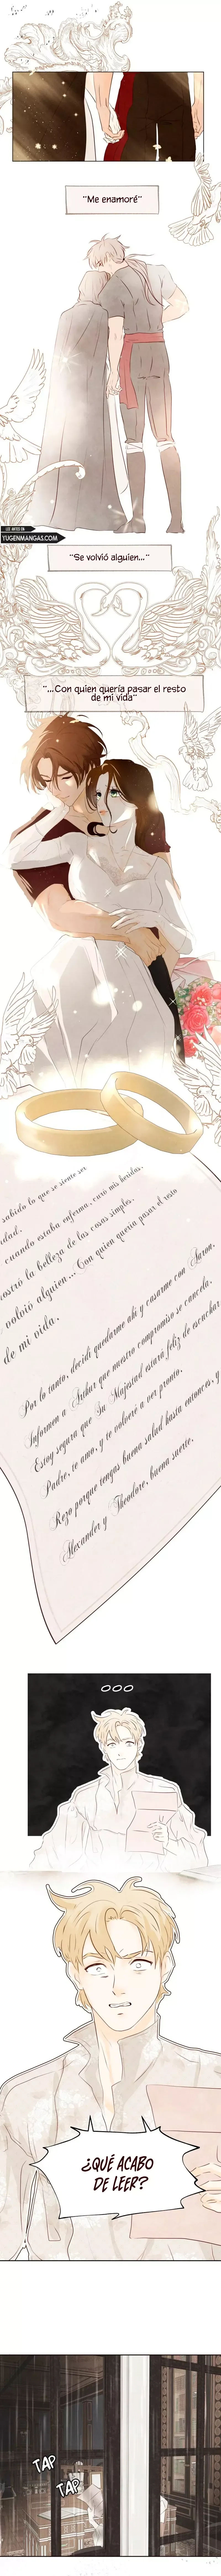 "Me enamoré"
LEE ANTES EN
YUGENMANGAS.COM
"Se volvió alguien..."
"...Con quien quería pasar el resto
de mi vida"
sabido lo que se siente ser
idad.
cuando estaba enferma, curó mis heridas.
ostró la belleza de las cosas simples.
volvió alguien... Con quien quería pasar el resto
de mi vida.
Por lo tanto, decidí quedarme ahí y casarme con Aaron.
Informen a Arthur que nuestro compromiso se cancela.
Estoy segura que Su Majestad estará feliz de escuchar
Padre, te amo, y te volveré a ver pronto.
Rezo porque tengas buena salud hasta entonces, y
Alexander y Theodore, buena suerte.
¿QUÉ ACABO
DE LEER?
TAP
TAP